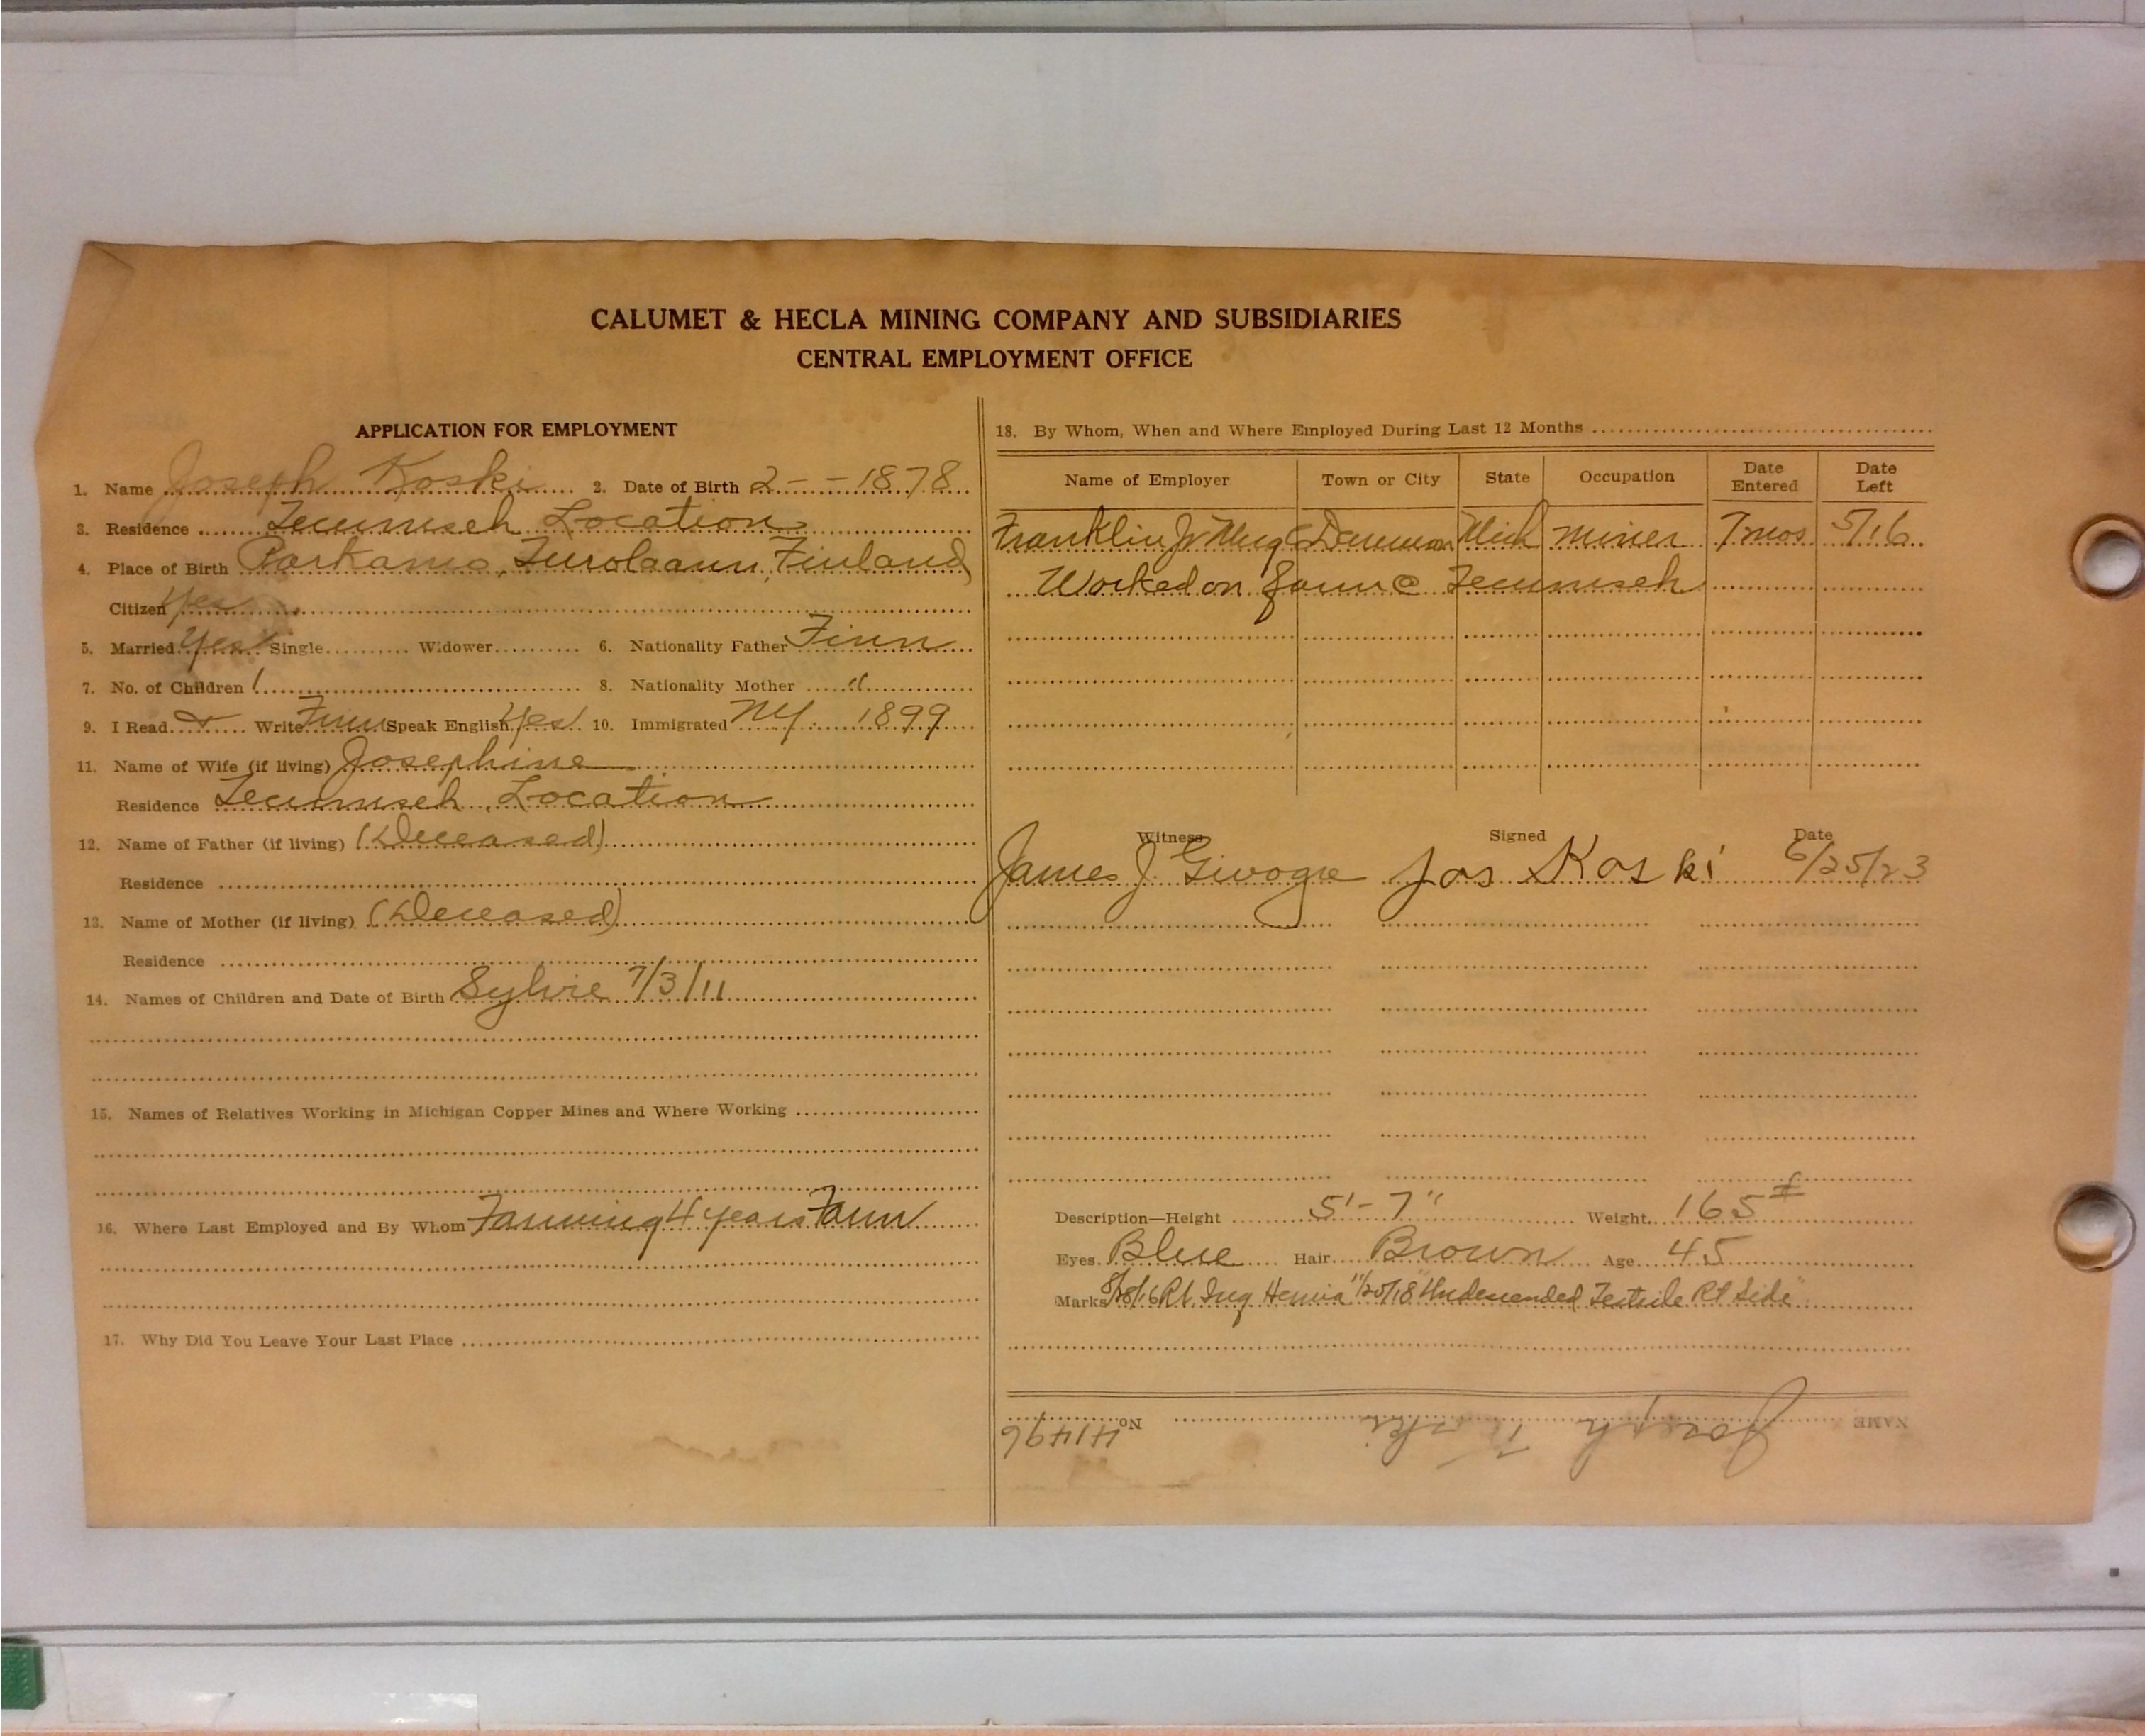 CALUMET & HECLA MINING COMPANY AND SUBSIDIARIES
CENTRAL EMPLOYMENT OFFICE
APPLICATION FOR EMPLOYMENT
1. Name Joseph Koski 2. Date of Birth 2 - - 1878
3. Residence Tecumseh Location
4. Place of Birth Parkano, Turolaann, Finland
Citizen Yes
5. Married Yes Single Widower 6. Nationality Father Finn
7. No. of Children 1 8. Nationality Mother "
9. I Read & Write Finn Speak English Yes 10. Immigrated NY. 1899
11. Name of Wife (if living) Josephine
Residence Tecumseh Location
12. Name of Father (if living) (Deceased)
Residence
13. Name of Mother (if living) (Deceased)
Residence
14. Names of Children and Date of Birth Sylvie 7/3/11
15. Names of Relatives Working in Michigan Copper Mines and Where Working
16. Where Last Employed and By Whom Farming 4 years Farm
17. Why Did You Leave Your Last Place
18. By Whom, When and Where Employed During Last 12 Months
Name of Employer Town or City State Occupation Date Entered Date Left
Franklin Jr Mng C Demmon Mich miner 7 mos 5/16
Worked on farm @ Tecumseh
Witness Signed Date
James J. Jos Koski 6/25/23
Description—Height 5'-7" Weight 165#
Eyes Blue Hair Brown Age 45
Marks 8/28/16 Rt. Ing Hernia 11/25/18 "Undescended Testicle Rt Side"
NAME Joseph Koski No. 41496